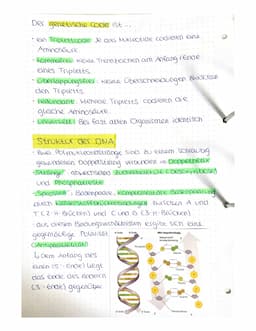 Der genetische Code ist ...
· ein Triplettcode: Je drei Nukleotide codieren eine
Aminosäure
· kommafrei: keine Trennzeichen am Anfang / Ende
eines Tripletts
· überlappungsfrei: keine Überschneidungen
den Tripletts
· redundant: Mehrere Tripletts codieren die
gleiche Aminosäure
· universell: Bei fast allen Organismen identisch
Struktur der DNA
· zwei Polynukleotidstränge sind zu einem schraubig
gewundenen Doppelstrang verbunden → Doppelhelix
· Stränge: abwechselnd Zuckermoleküle (Desoxyribose)
und Phosphatreste
· Basenpaare, komplementäre Basenpaarung
durch Wasserstoffbrückenbindungen zwischen A und
T (2 H-Brücken) und C und G (3 H-Brücken)
· aus diesen ergibt sich eine
gegenläufige Polarität
(Antiparallelität)
↳ Dem Anfang des
einen (5'-Ende) liegt
das Ende des anderen
(3'-Ende) gegenüber